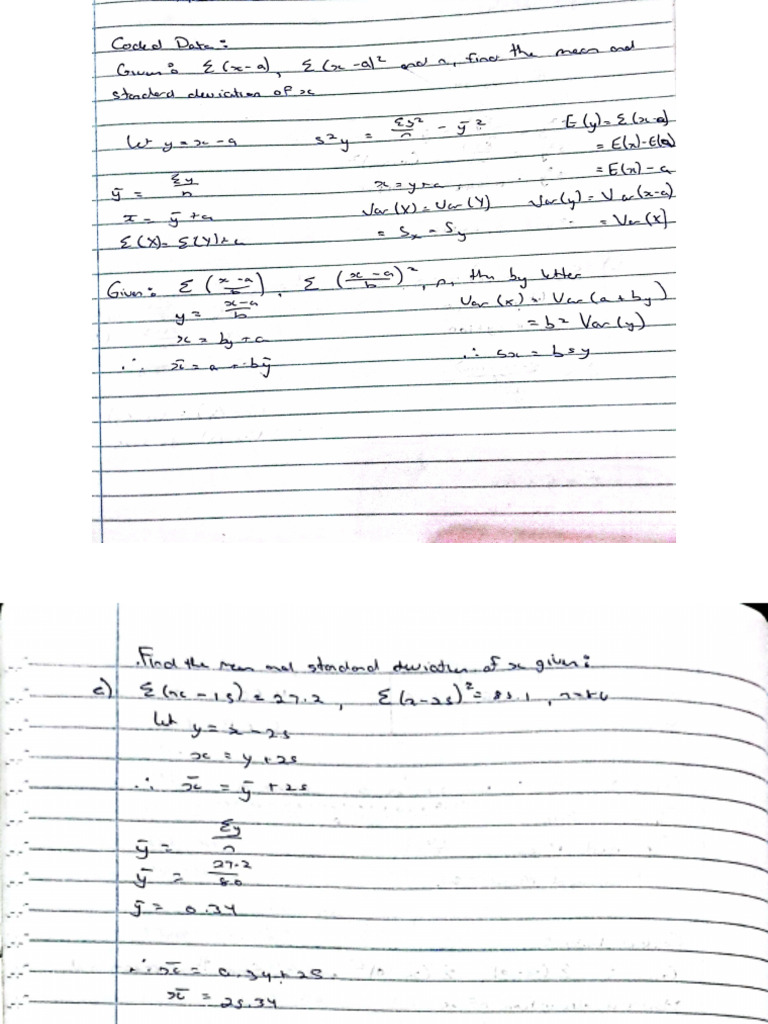 Coded Data:
Given: Σ(x-a), Σ(x-a)² and n, find the mean and
standard deviation of x
Let y = x - a    s²y = Σy²/n - ȳ²    E(y) = Σ(x-a)
= E(x) - E(a)
ȳ = Σy/n    x = y + a    = E(x) - a
x̄ = ȳ + a    Var(X) = Var(Y)    Var(y) = Var(x-a)
Σ(X) = Σ(Y) + a    = Sx = Sy    = Var(X)
Given: Σ((x-a)/b), Σ((x-a)/b)², n, by
y = (x-a)/b    Var(x) = Var(a+by)
x = by + a    = b² Var(y)
∴ x̄ = a + bȳ    ∴ sx = bsy
Find the mean and standard deviation of x given:
Σ(x - 15) = 27.2, Σ(x-25)² = 85.1,
Let y = x - 25
x = y + 25
∴ x̄ = ȳ + 25
ȳ = Σy/n
ȳ = 27.2/80
ȳ = 0.34
∴ x̄ = 0.34 + 25
x̄ = 25.34